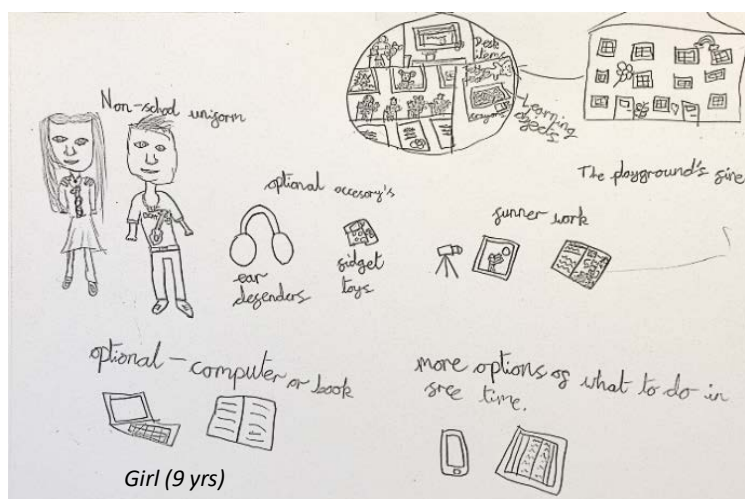 Non-schol uniform
Desk
items
crayons
Learning
objects
The playground's fine
optional accesory's
ear
defenders
fidget
toys
funner work
optional - computer or book
more options of what to do in
free time.
Girl (9 yrs)